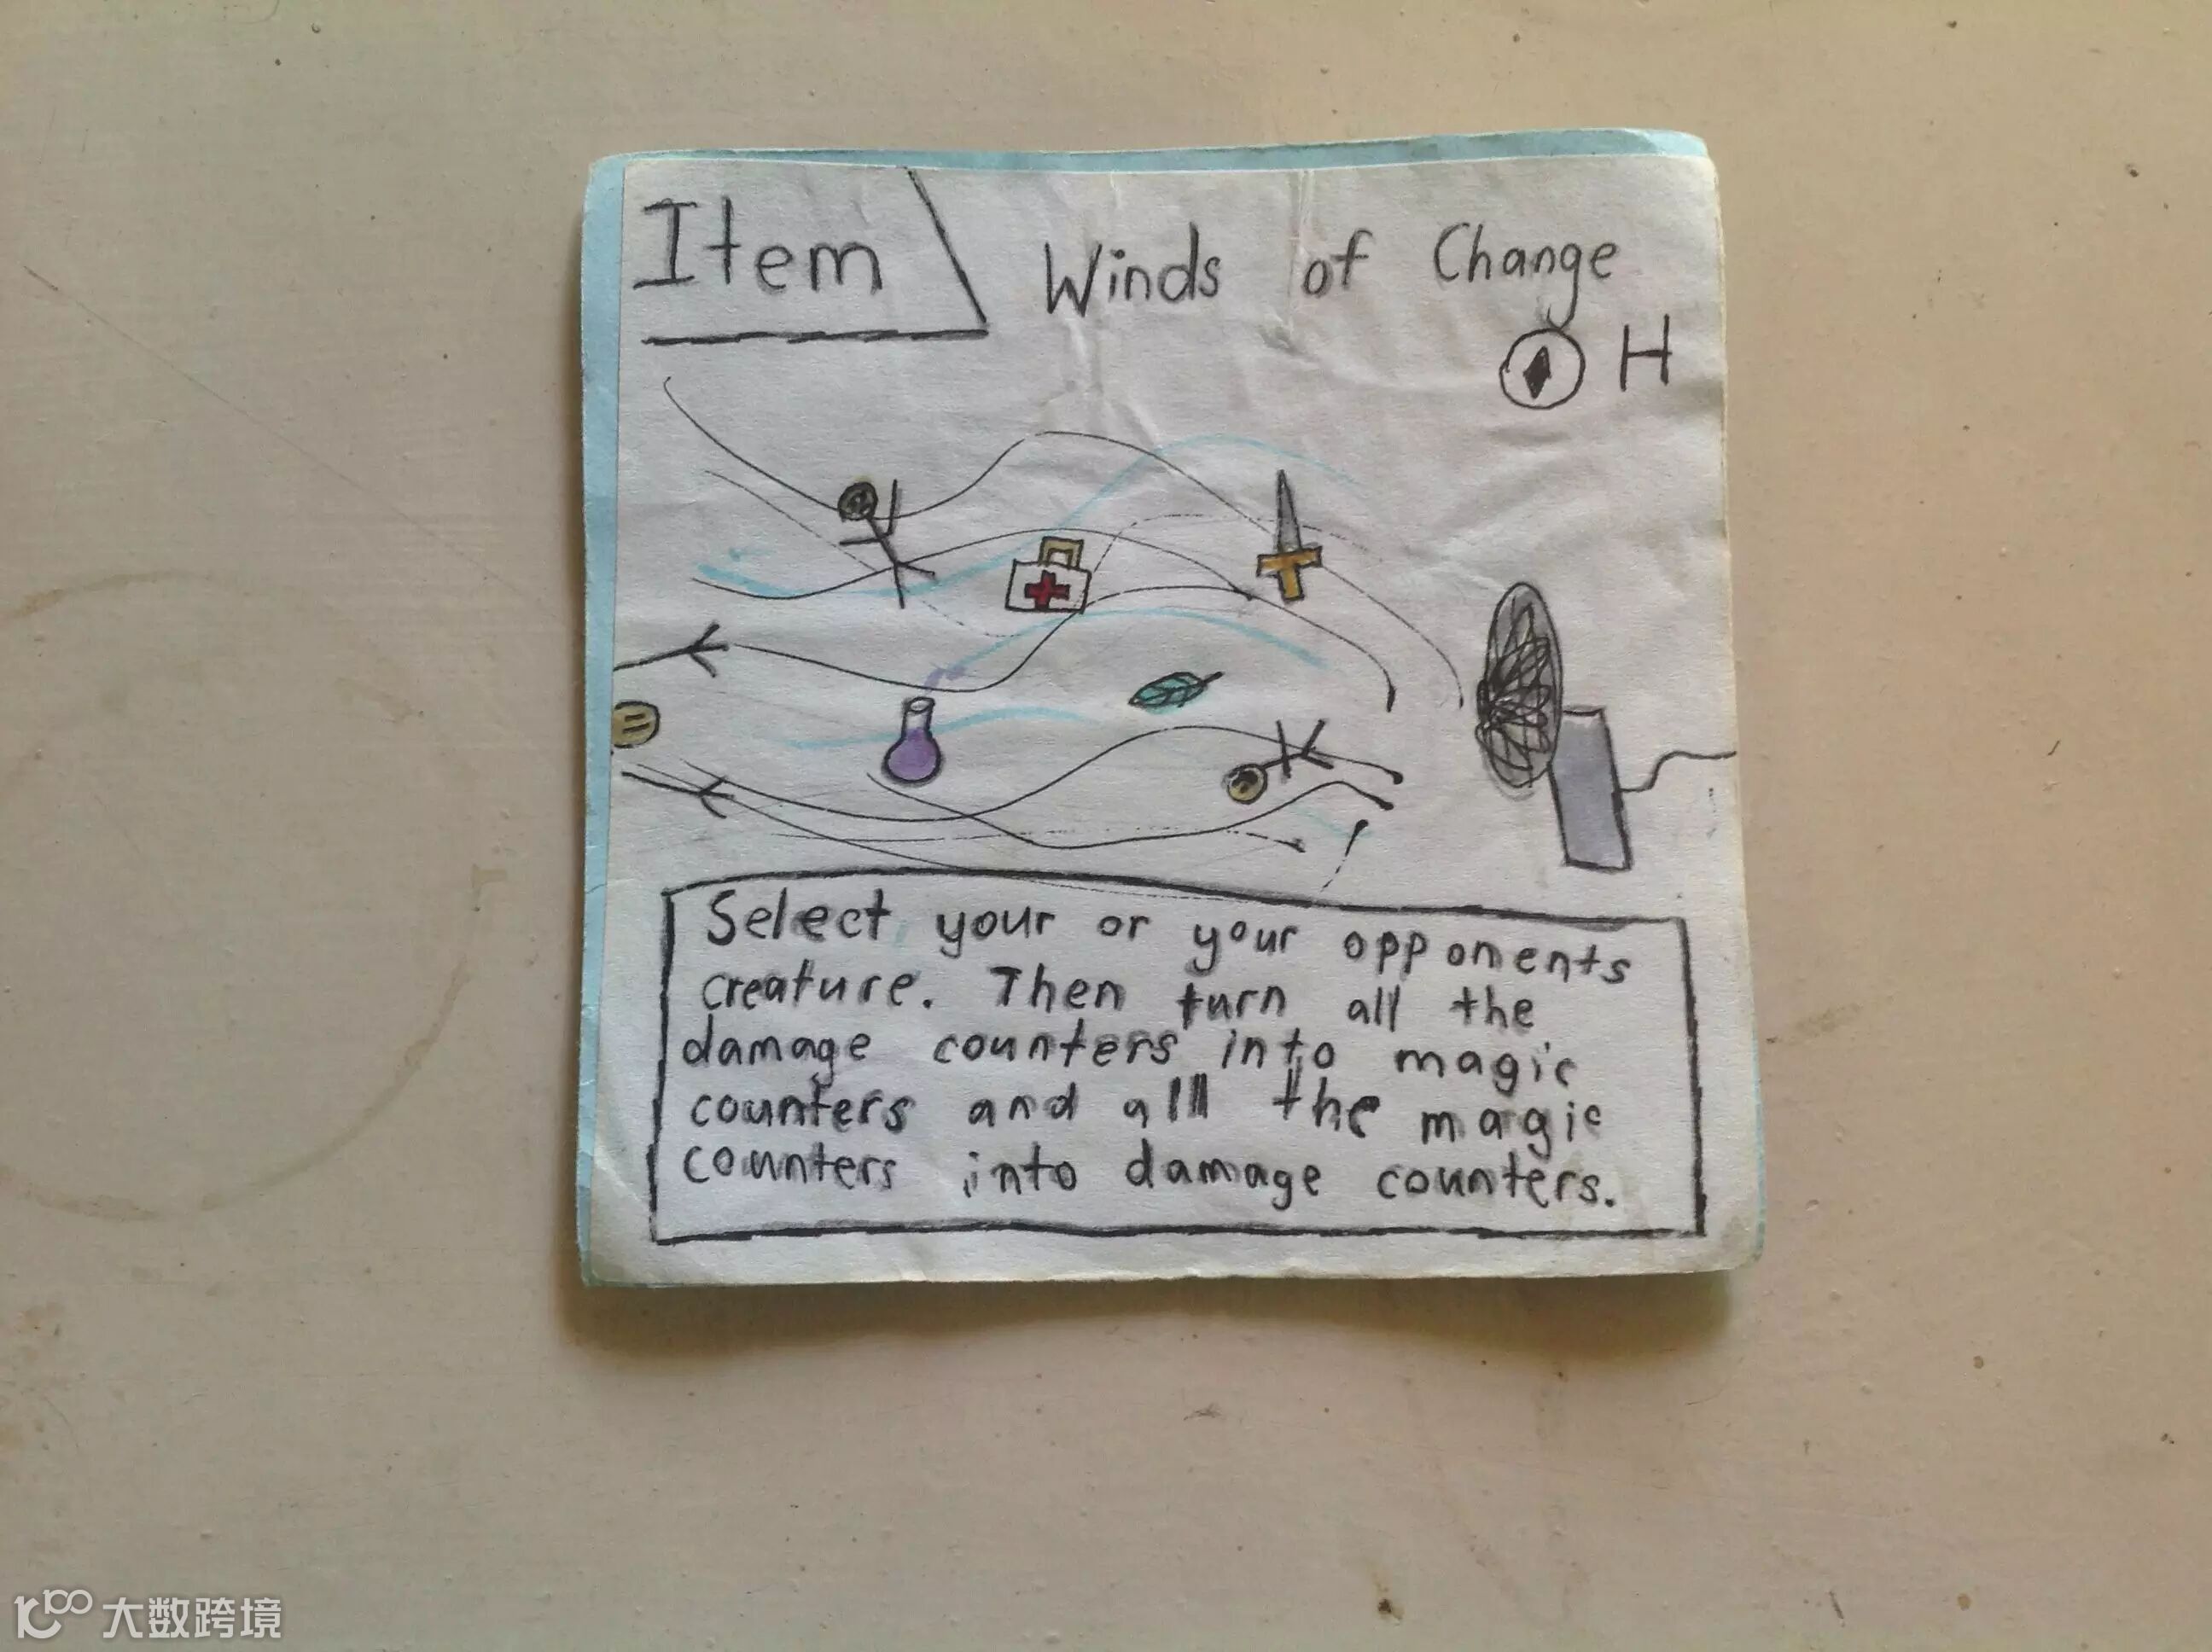 Item
Winds of Change
H
Select your or your opponents
creature. Then turn all the
damage counters into magic
counters and all the magic
counters into damage counters.
大数跨境